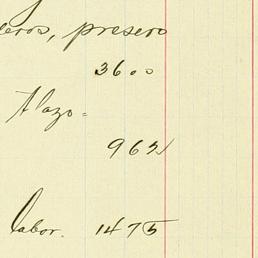 eros, presero
3600
Alazo=
962
labor. 1475